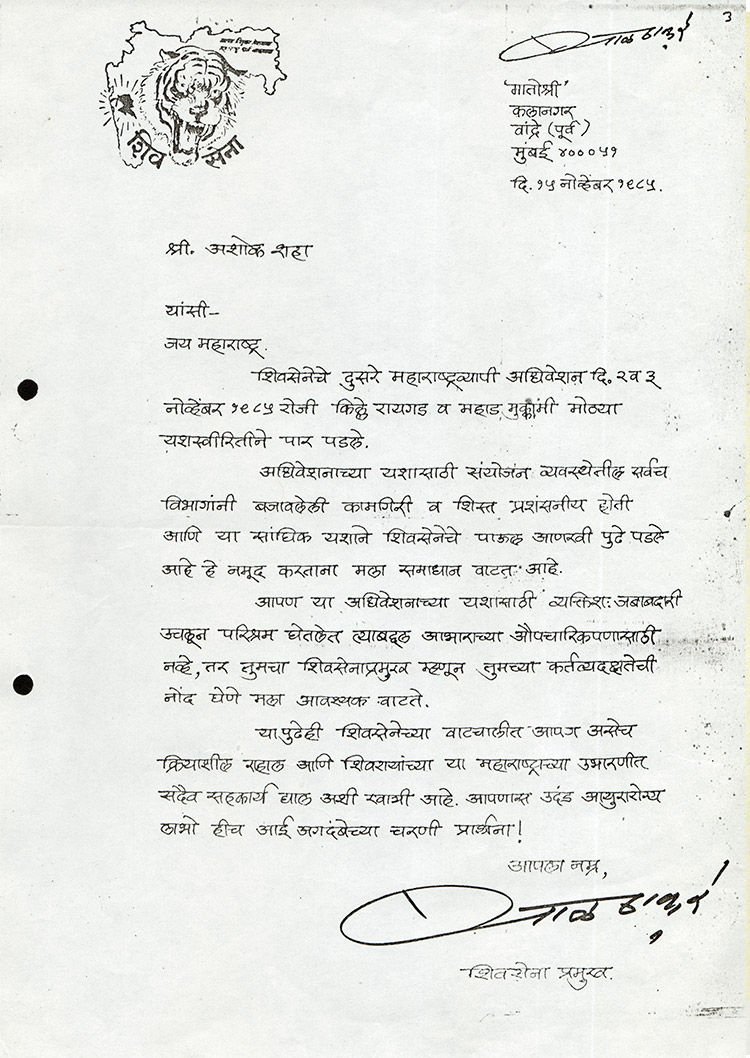 3
बाळ ठाकरे
शिव सेना
'मातोश्री'
कलानगर
वांद्रे (पूर्व)
मुंबई ४०००५१
दि. १५ नोव्हेंबर १९८५.
श्री. अशोक शहा
यांसी-
जय महाराष्ट्र.
शिवसेनेचे दुसरे महाराष्ट्रव्यापी अधिवेशन दि. २ व ३
नोव्हेंबर १९८५ रोजी किल्ले रायगड व महाड मुक्कामी मोठ्या
यशस्वीरितीने पार पडले.
अधिवेशनाच्या यशासाठी संयोजन व्यवस्थेतील सर्वच
विभागांनी बजावलेली कामगिरी व शिस्त प्रशंसनीय होती
आणि या सांघिक यशाने शिवसेनेचे पाऊल आणखी पुढे पडले
आहे हे नमूद करताना मला समाधान वाटत आहे.
आपण या अधिवेशनाच्या यशासाठी व्यक्तिश: जबाबदारी
उचलून परिश्रम घेतलेत त्याबद्दल आभाराच्या औपचारिकपणासाठी
नव्हे, तर तुमचा शिवसेनाप्रमुख म्हणून तुमच्या कर्तव्यदक्षतेची
नोंद घेणे मला आवश्यक वाटते.
यापुढेही शिवसेनेच्या वाटचालीत आपण असेच
क्रियाशील राहाल आणि शिवरायांच्या या महाराष्ट्राच्या उभारणीत
सदैव सहकार्य द्याल अशी खात्री आहे. आपणास उदंड आयुरारोग्य
लाभो हीच आई जगदंबेच्या चरणी प्रार्थना!
आपला नम्र,
बाळ ठाकरे
शिवसेना प्रमुख.